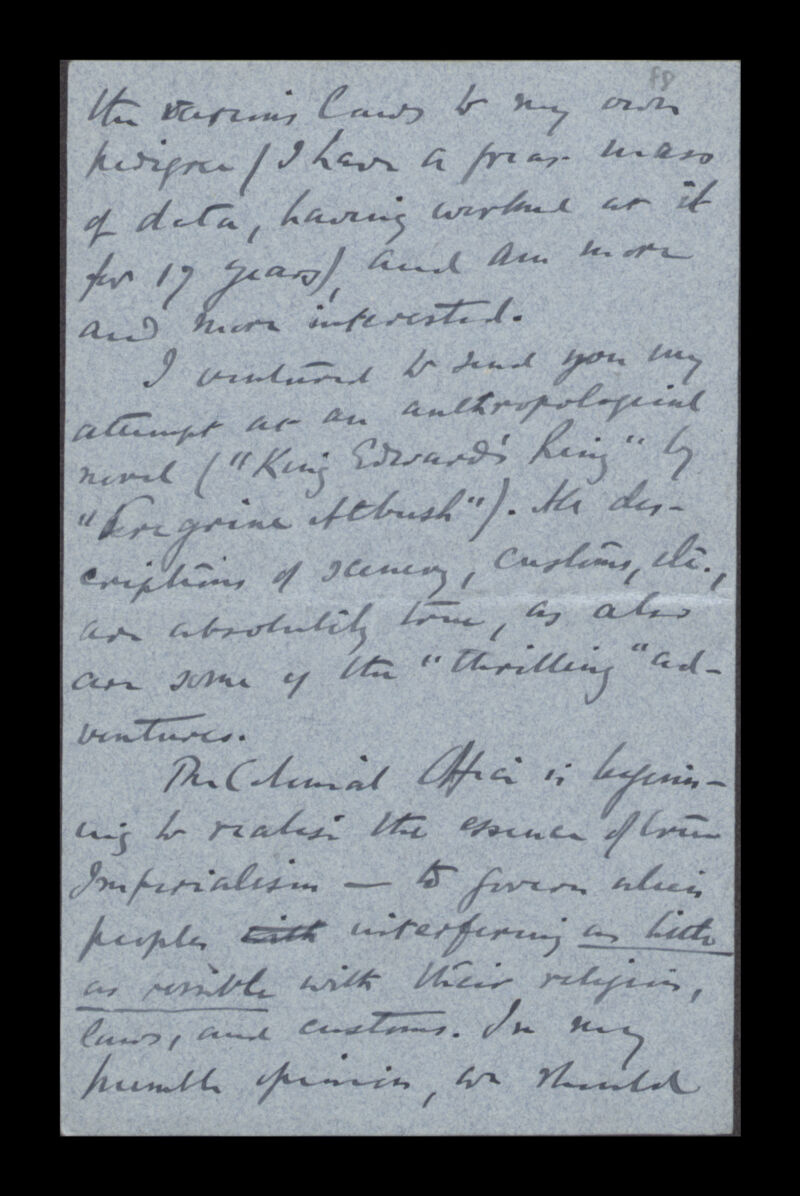 88
the various laws to my own
pedigree (I have a great mass
of data, having worked at it
for 17 years), and am more
and more interested.
I ventured to send you my
attempt at an anthropological
novel ("King Edward's Ring" by
"Peregrine Atbush"). All des-
criptions of scenery, customs, etc.,
are absolutely true, as also
are some of the "thrilling" ad-
ventures.
The Colonial Office is beginn-
ing to realise the essence of true
Imperialism — to govern alien
peoples interfering as little
as possible with their religion,
laws, and customs. In my
humble opinion, we should